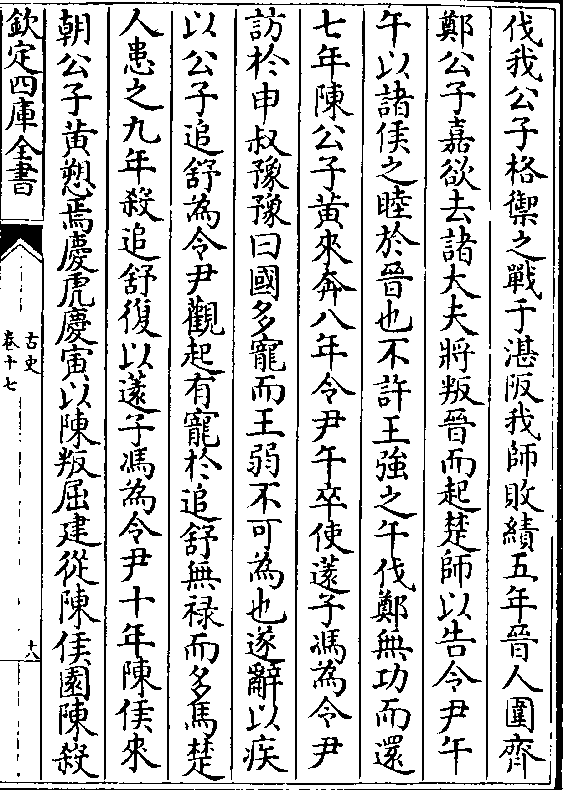 伐我公子格禦之戰于湛阪我師敗績五年晉人圍齊
鄭公子嘉欲去諸大夫將叛晉而起楚師以告令尹午
午以諸侯之睦於晉也不許王強之午伐鄭無功而還
七年陳公子黃來奔八年令尹午卒使薳子馮為令尹
訪於申叔豫豫曰國多寵而王弱不可為也遂辭以疾
以公子追舒為令尹觀起有寵於追舒無祿而多馬楚
人患之九年殺追舒復以薳子馮為令尹十年陳侯來
朝公子黃愬焉慶虎慶寅以陳叛屈建從陳侯圍陳殺
欽定四庫全書
古史
卷十七
十八